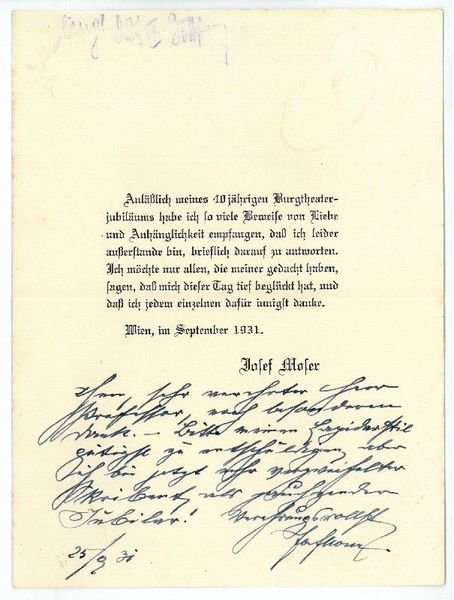 Anläßlich meines 40 jährigen Burgtheater-
jubiläums habe ich so viele Beweise von Liebe
und Anhänglichkeit empfangen, daß ich leider
außerstande bin, brieflich darauf zu antworten.
Ich möchte nur allen, die meiner gedacht haben,
sagen, daß mich dieser Tag tief beglückt hat, und
daß ich jedem einzelnen dafür innigst danke.
Wien, im September 1931.
Josef Moser
Ihnen, sehr verehrter Herr
Professor, noch besonderen
Dank. – Bitte meinen Lapidarstil
gütigst zu entschuldigen, aber
ich bin jetzt mehr verzweifelter
Skribent, als jauchzender
Jubilar! Verehrungsvollst
25/9 31